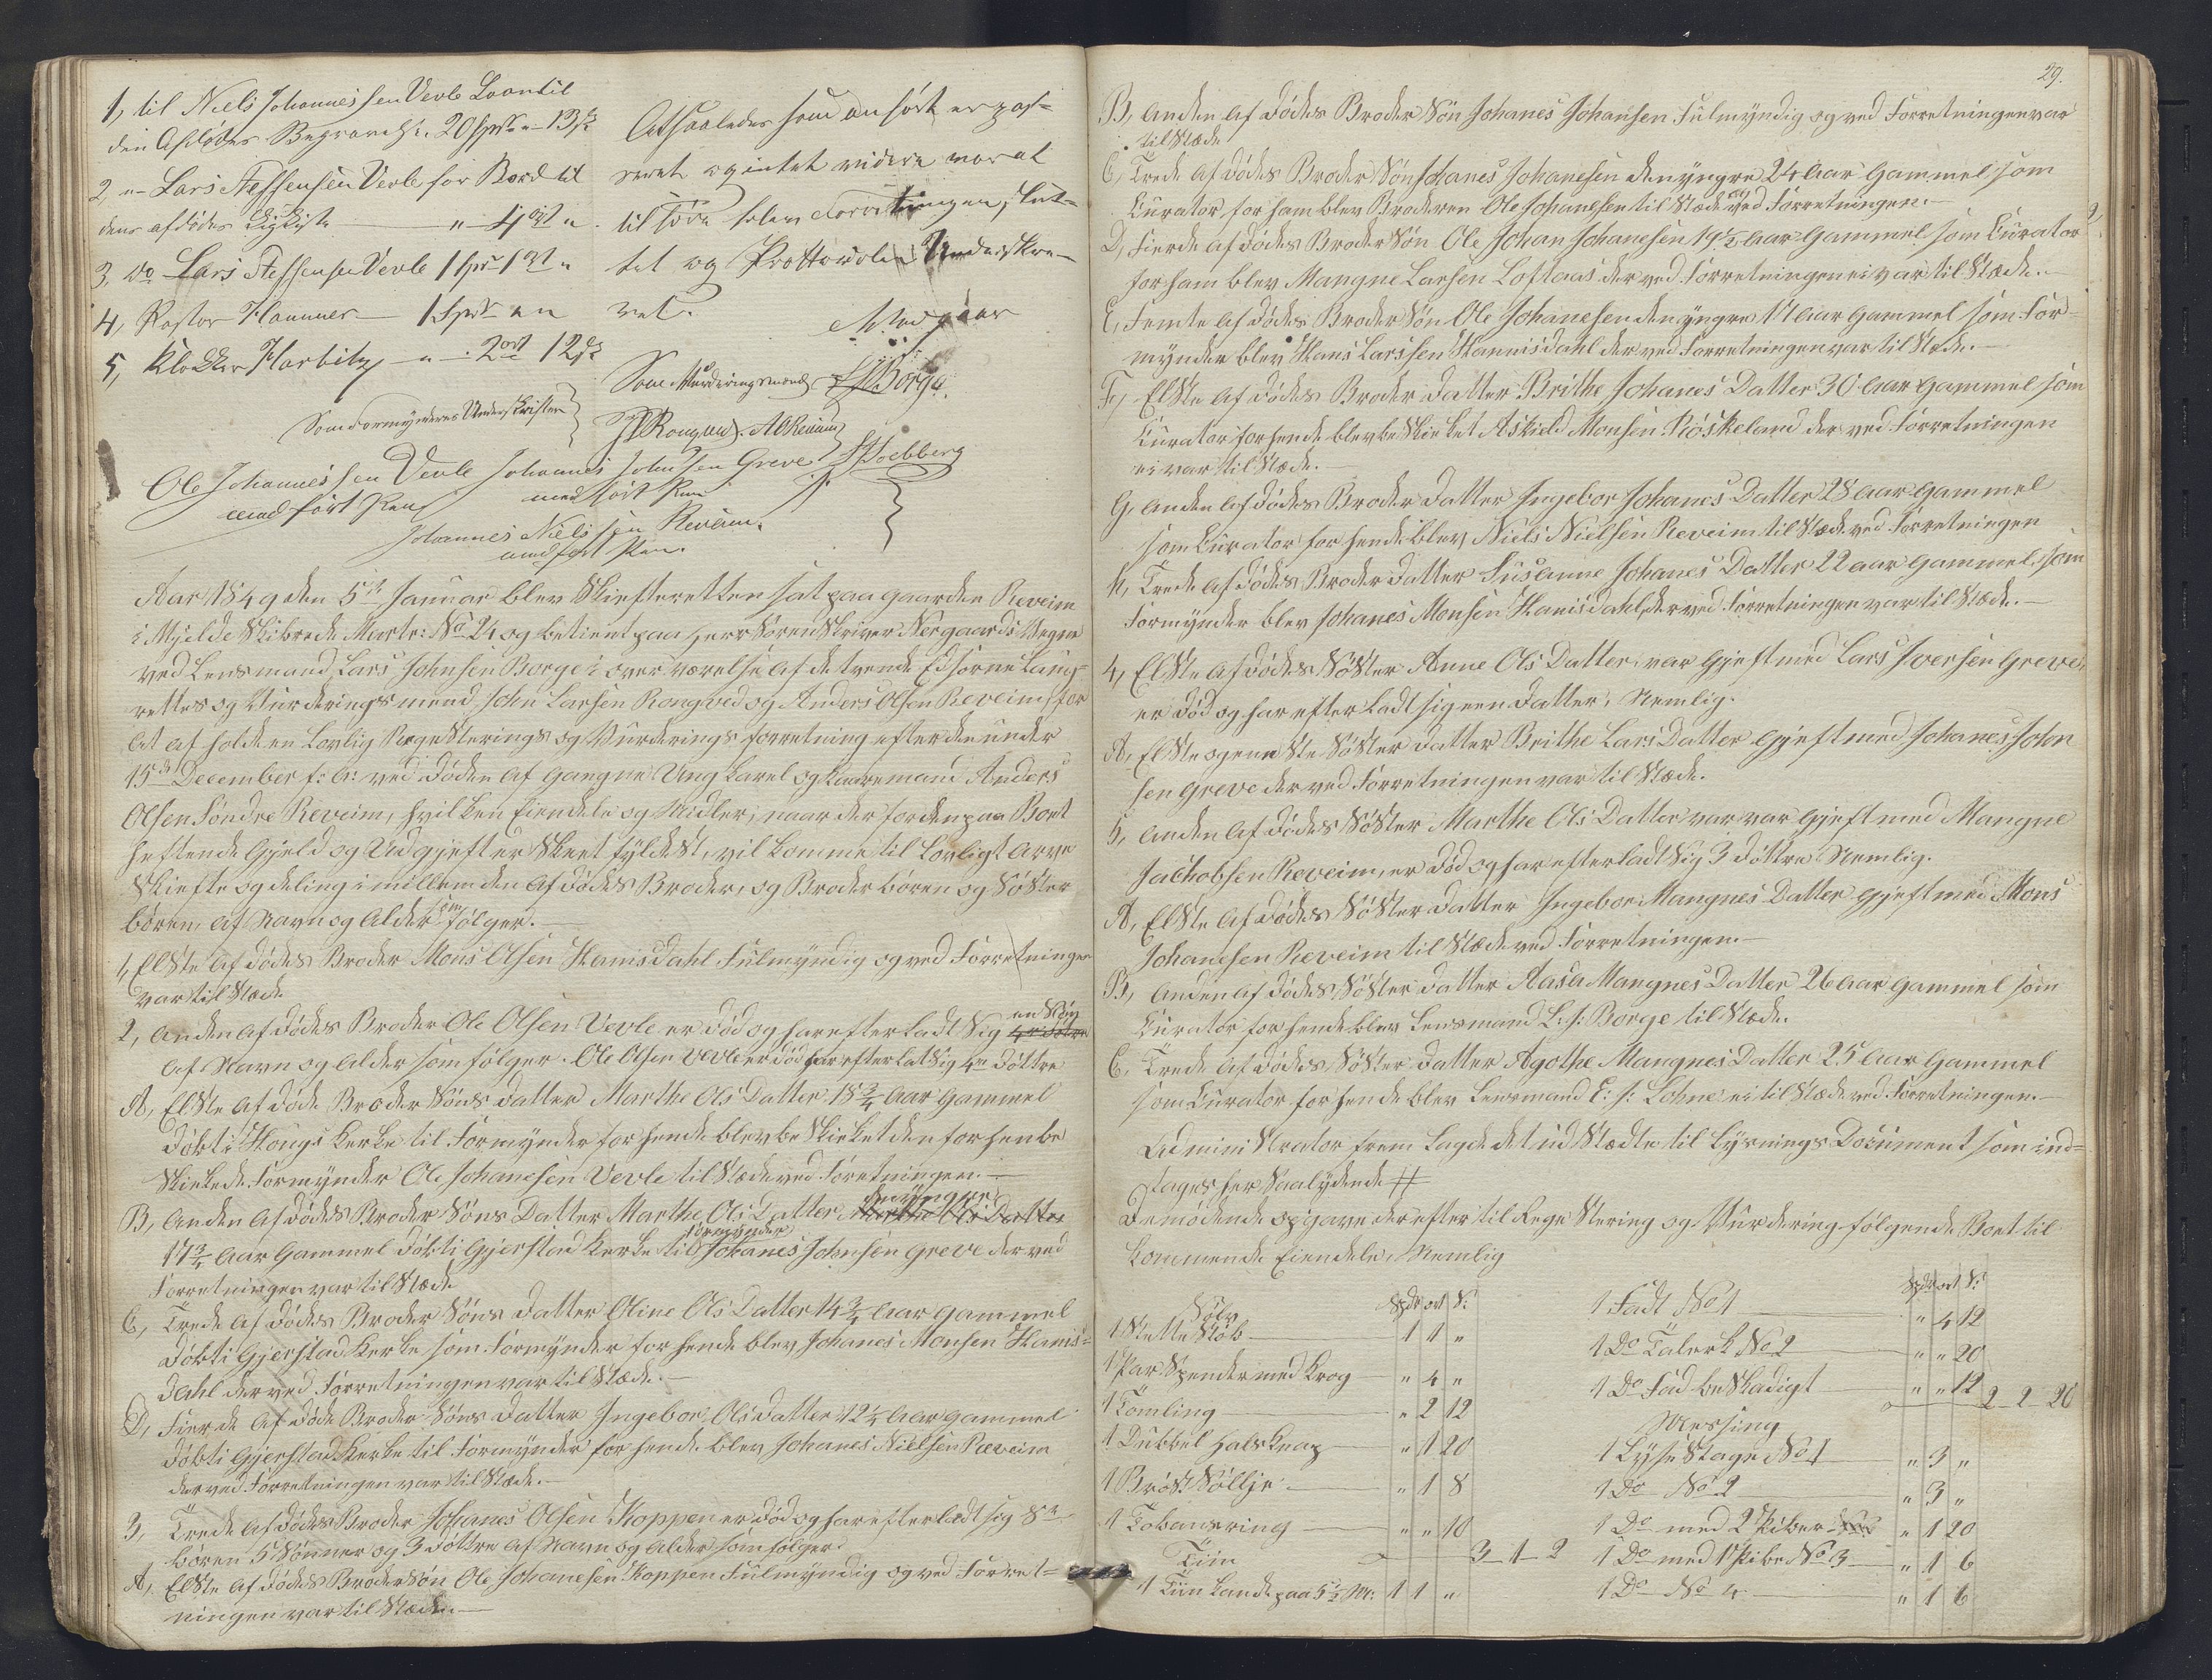 1, til Niels Johannesen Vevle Laantil
den Afdødes Begravelse. 20 Spd " 13 s
2, " Lars Steffensen Vevle for Bord til
dens afdødes Ligkiste " 4 ort "
3, Do Lars Steffensen Vevle 1 Spd 1 ort "
4, Pastor Hammer 1 Spd " "
5, Klokker Harbitz " 2 ort 12 s
At saaledes som anført er pas-
seret og intet videre var at
tilføre blev Forretningen slut-
tet og Prottocolen Underskre-
vet.
Som Vurderingsmend LJBorge.
JLRongved. AOReveim
Som Formynderes Underskrifter
Ole Johannessen Vevle Johannes Johnsen Greve
med ført Pen med ført Pen
Johannes Nielssen Reveim.
med ført Pen.
Aar 1849 den 5te Januar blev Skifteretten sat paa gaarden Reveim
i Mjelde Skibrede Matr: No 24 og betient paa Herr Sørenskriver Nergaards Vegne
ved Lensmand Lars Johnsen Borge i overværelse af de tvende Edsorne Laug-
rettes og Vurderingsmend John Larsen Rongved og Anders Olsen Reveim for
at af holde en Lovlig Regesterings og Vurderings forretning efter den under
15de December f: A: ved døden af gangne Ung karel og Kaaremand Anders
Olsen Søndre Reveim, hvilken Eiendele og Midler, naar der for den paa Boet
heftende Gjeld og Udgjefter Skeet fyldest, vil komme til Lovligt Arve
Skiefte og deling imillem den Afdødes Broder, og Broder børen og Søster
børen, af Navn og Alder som følger.
1, Elste Afdødes Broder Mons Olsen Hamisdahl Fulmyndig og ved Forretningen
var til Stæde
2, Anden Afdødes Broder Ole Olsen Vevle er død og har efterladt Sig en Søn
Af Navn og Alder som følger. Ole Olsen Vevle er død har efterlat Sig 4re døttre
A, Elste Afdøde Broder Søns datter Marthe Ols Datter 18 3/4 Aar Gammel
døbt i Hougs Kerke til Formynder for hende blev beskicket den forhen be
Skickede Formynder Ole Johanesen Vevle til Stæde ved Foretningen.
B, Anden Afdødes Broder Søns Datter Marthe Ols Datter den yngre
17 3/4 Aar Gammel døbt i Gjerstad Kerke til formynder Johanes Johnsen Greve der ved
Forretningen var til Stæde
C, Trede Afdødes Broder Søns Datter Oline Ols Datter 14 3/4 Aar Gammel
døbt i Gjerstad Kerke som Formynder for hende blev Johanes Monsen Hamis-
dahl der ved Forretningen var til Stæde.
D, Fierde Afdøde Broder Søns Datter Ingebor Olsdatter 12 1/4 Aar Gammel
døbt i Gjerstad Kerke til Formynder for hende blev Johanes Nielsen Reveim
der ved Forretningen var til Stæde.
3, Trede Afdødes Broder Johanes Olsen Koppen er død og har efterladt sig 8te
børen 5 Sønner og 3 døttre Af Navn og Alder som følger
A, Elste Afdødes Broder Søn Ole Johanesen Koppen Fulmyndig og ved Forret-
ningen var til Stæde.
29.
B, Anden Afdødes Broder Søn Johanes Johansen Fulmyndig og ved Forretningen var
til Stæde
C, Trede Afdødes Broder Søn Johanes Johanesen den yngre 24 Aar Gammel som
Curator for ham blev Broderen Ole Johanesen til Stæde ved Forretningen.
D, Fierde Afdødes Broder Søn Ole Johan Johanesen 19 1/2 Aar Gammel som Curator
for ham blev Mangne Larsen Loftaas der ved Forretningen ei var til Stæde.
E, Femte Afdødes Broder Søn Ole Johanesen den yngre 17 Aar Gammel som For-
mynder blev Hans Larssen Hannisdahl der ved Forretningen var til Stæde.
F, Elste Afdødes Broder datter Brithe Johanes Datter 30 Aar Gammel som
Curator for hende blev beskicket Askild Monsen Røskeland der ved Forretningen
ei var til Stæde.
G, Anden Afdødes Broder datter Ingebor Johanes Datter 28 Aar Gammel
som Curator for hende blev Niels Nielsen Reveim til Stæde ved Forretningen
H, Trede Afdødes Broder datter Susanne Johanes Datter 22 aar gammel som
Formynder blev Johanes Monsen Hamisdahl, der ved Forretningen var til Stæde.
4, Elste Afdødes Søster Anne Ols Datter, var Gjeft med Lars Iversen Greve,
er død og har efterladt sig een datter, Nemlig.
A, Elste og eneste Søster datter Brithe Lars Datter Gjeft med Johanes John
sen Greve der ved Forretningen var til Stæde.
5, Anden Afdødes Søster Marthe Ols Datter var var Gjeft med Mangne
Jachobsen Reveim, er død og har efterladt Sig 3 døttre Nemlig.
A, Elste Afdødes Søster datter Ingebor Mangnes Datter Gjeft med Mons
Johanesen Reveim til Stæde ved Forretningen.
B, Anden Afdødes Søster datter Aasa Mangnes Datter 26 Aar Gammel som
Curator for hende blev Lensmand L: J: Borge til Stæde.
C, Trede Afdødes Søster datter Agothe Mangnes Datter 25 Aar Gammel
som Curator for hende blev Lensmand E: J: Lohne ei til Stæde ved Forretningen.
Administrator frem lagde det ud Stædte til Lysnings Document som ind-
tages her Saalydende #
De mødende opgave der efter til Rege Stering og Vurdering følgende Boet til
kommende Eiendele, Nemlig
Sølv Spd ort S:
1 Stette Støb 1 1 "
1 Par Spender med Krog " 4 "
1 Tomling " 2 12
1 Dubbel halsknap " 1 20
1 Brøst Søllje " 1 8
1 Tobansring " " 10
3 1 2
Tiin
1 Tiin Kande paa 5 1/2 M: 1 1 "
Spd ort S:
1 Fadt No 1 " 4 12
1 Do Talerk No 2 " " 20
1 Do Fad beskadigt " " 12
2 2 20
Messing
1 Lyse Stage No 1 " 3 "
1 Do No 2 " 3 "
1 Do med 2 Piber " 1 20
1 Do med 1 Pibe No 3 " 1 6
1 Do No 4 " 1 6